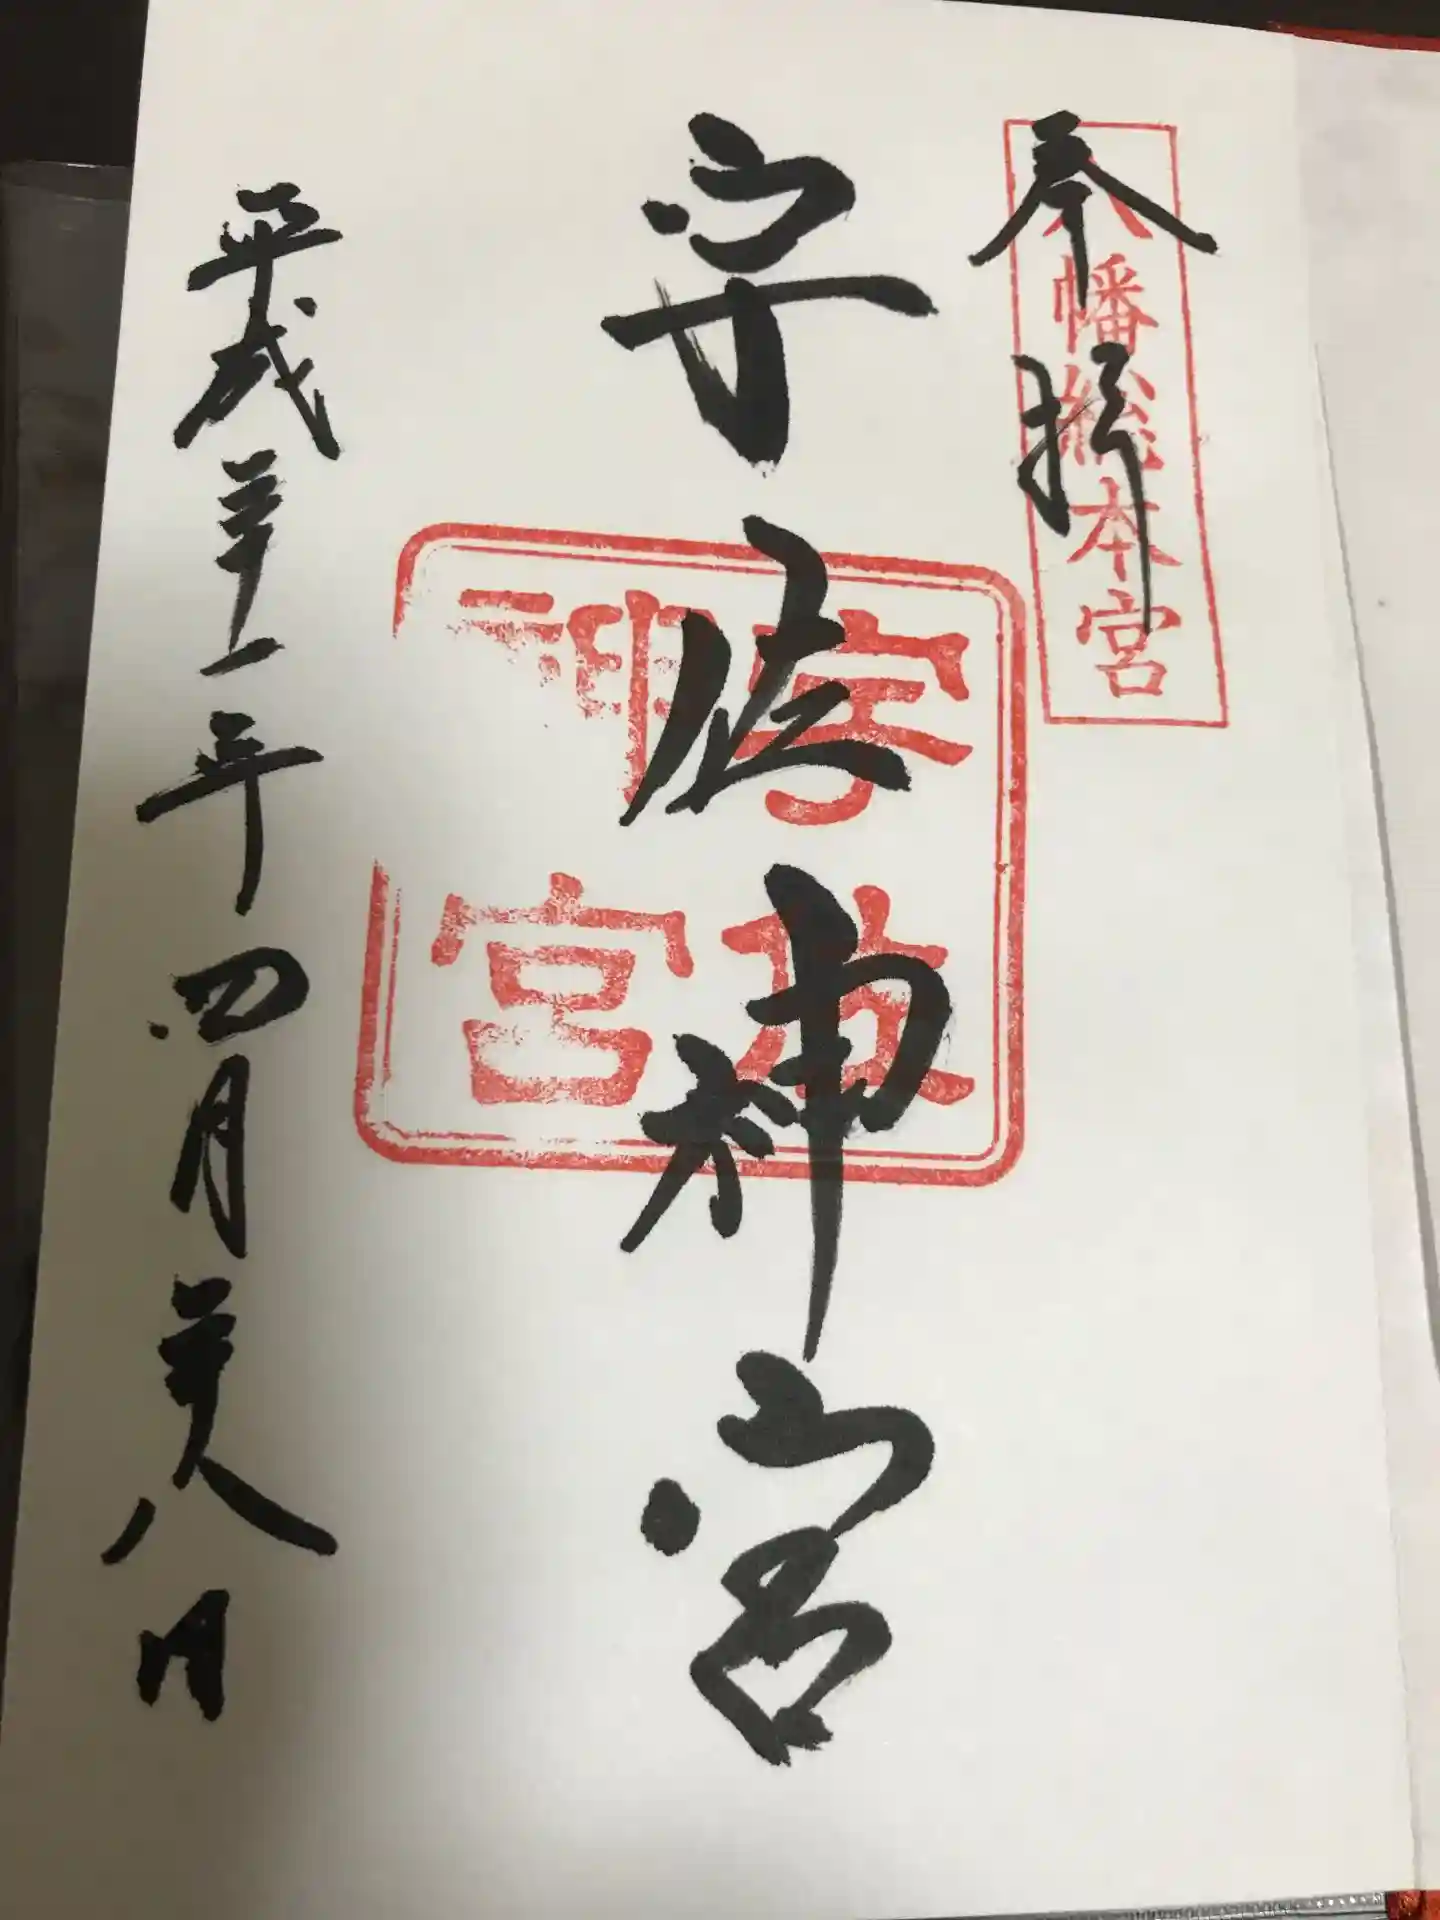 奉拝
八幡総本宮
宇佐神宮
宇佐神宮
平成三十一年四月二十八日